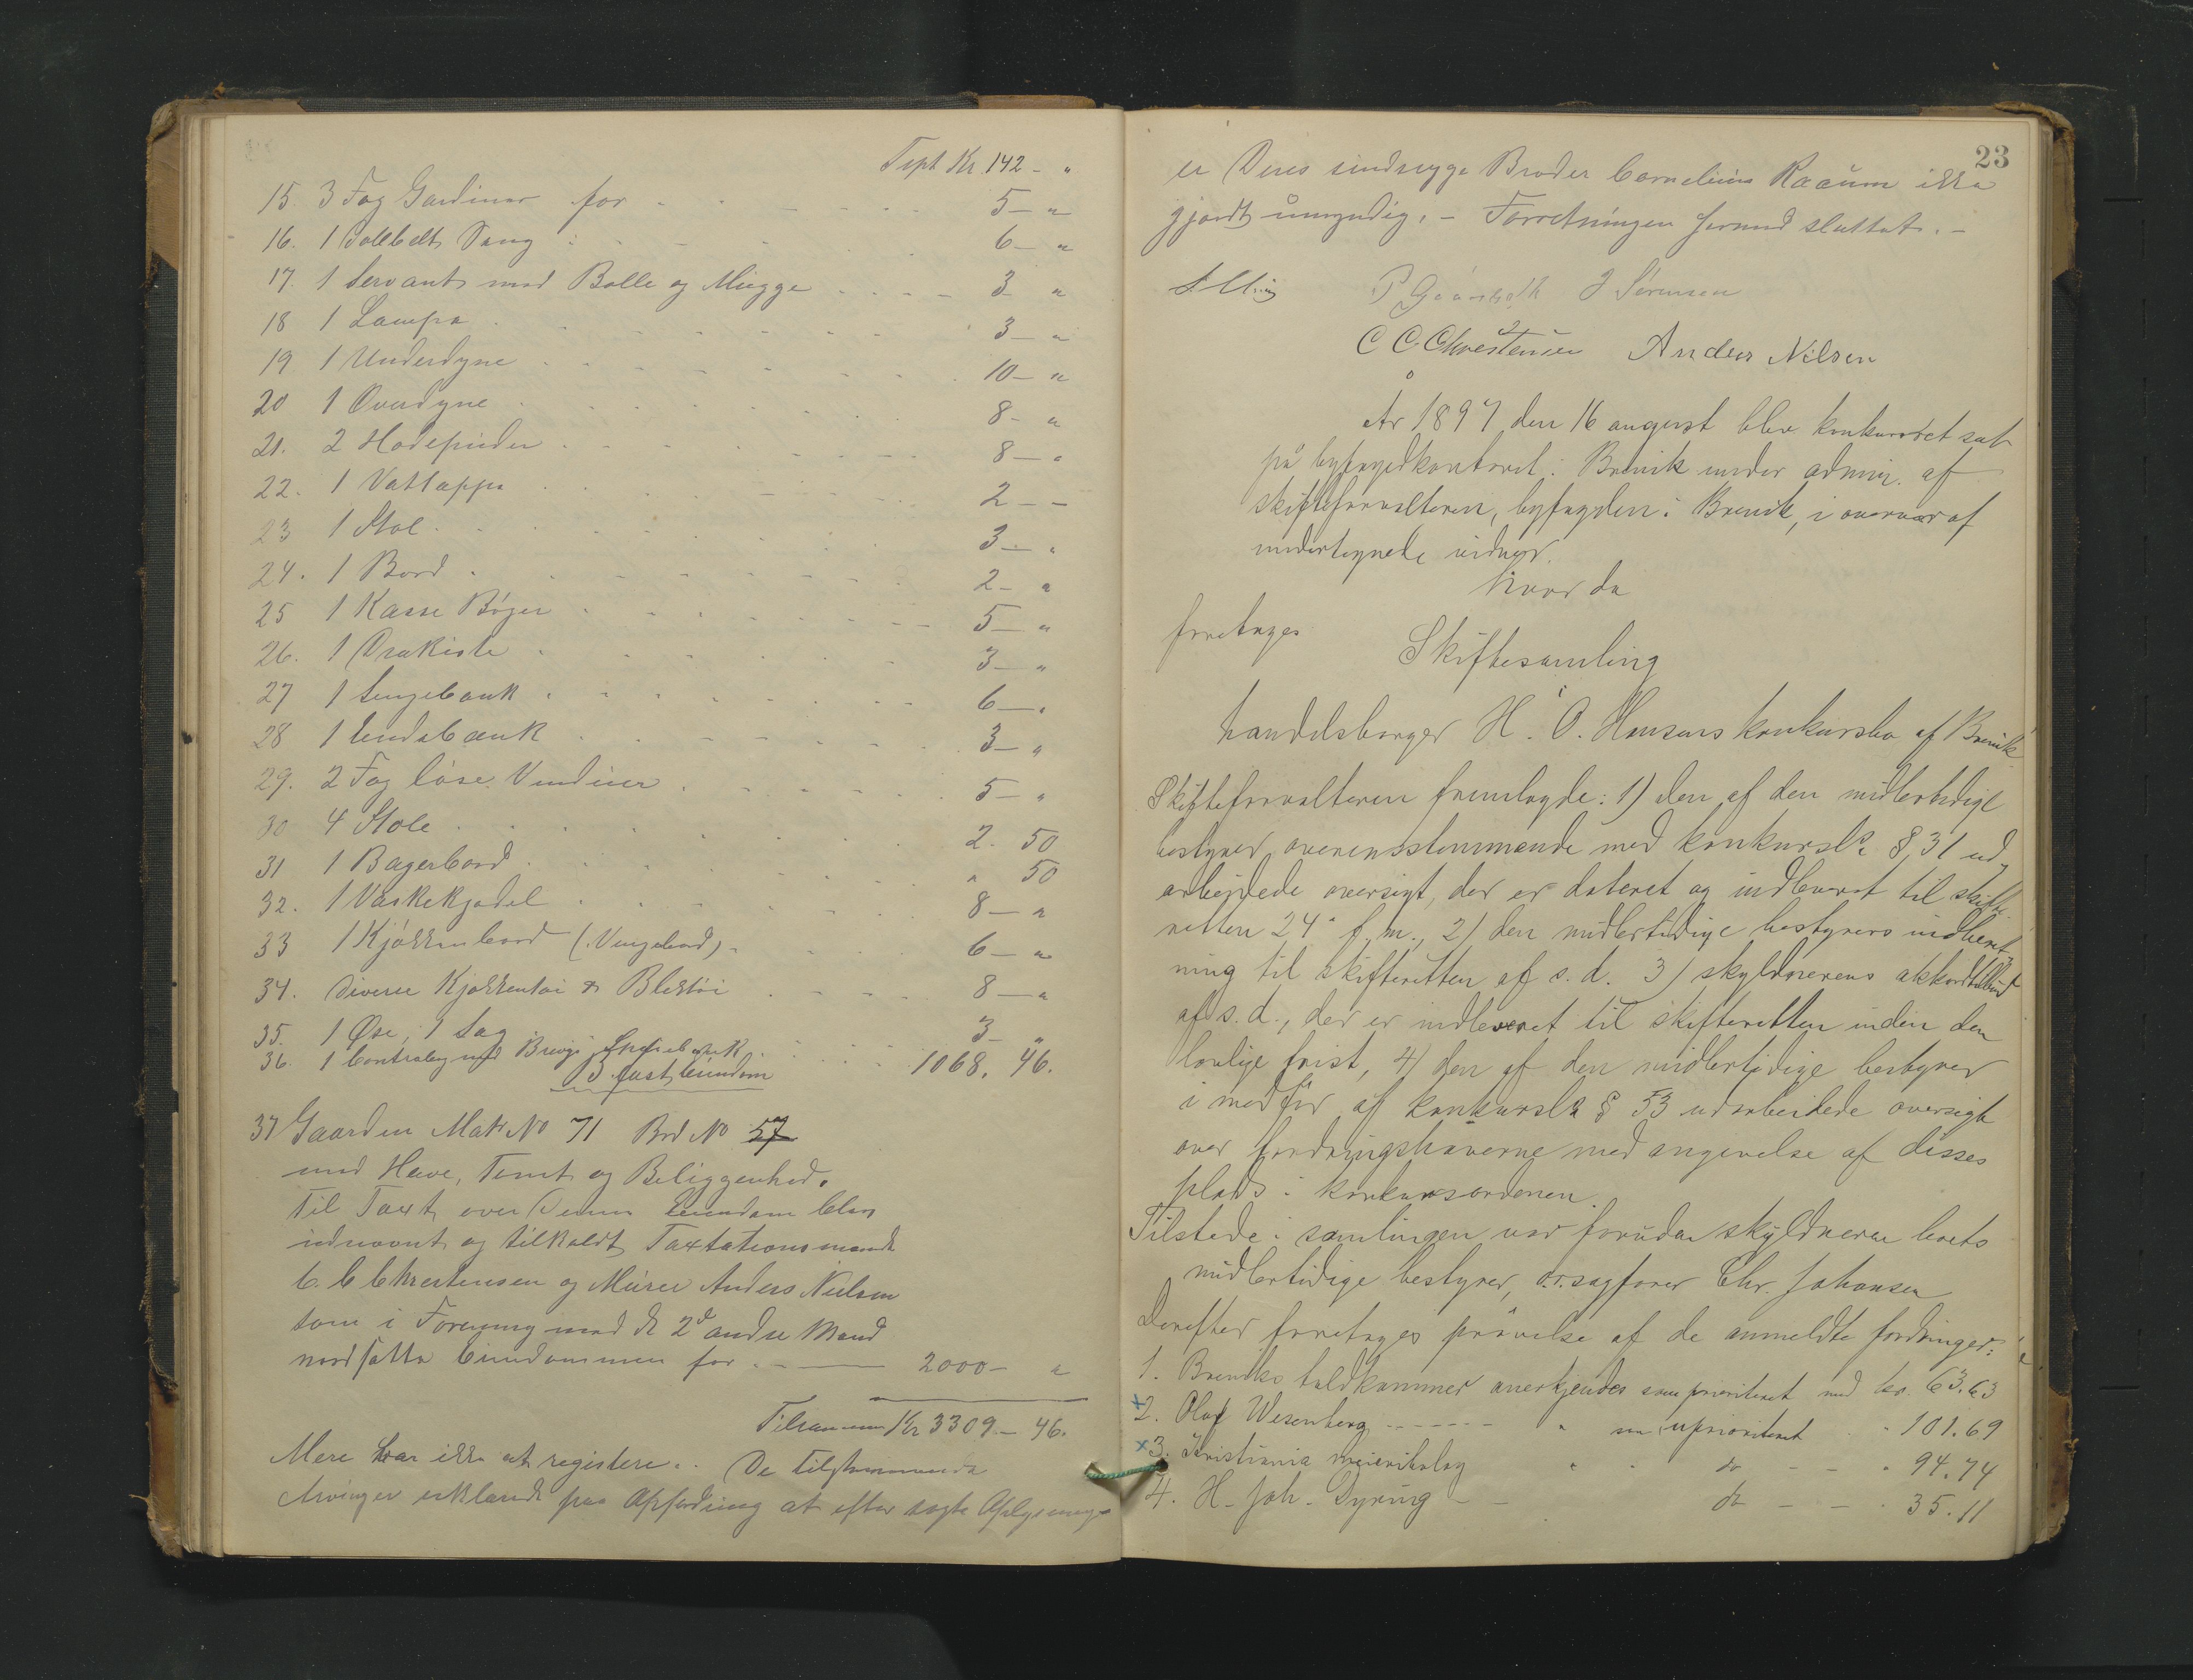 Tspt Kr. 142 - "
15. 3 Fag Gardiner for 5 - "
16. 1 dobbelt Seng 6 - "
17. 1 Servant med Bolle og Mugge 3 "
18 1 Lampe 3 - "
19 1 Underdyne 10 - "
20 1 Overdyne 8 - "
21. 2 Hodepuder 8 - "
22. 1 Vatteppe 2 - -
23 1 Stol 3 - "
24. 1 Bord 2 - "
25 1 Kasse Bøger 5 - "
26. 1 Drakiste 3 - "
27 1 Sengebænk 6 - "
28 1 Endebænk 3 - "
29. 2 Fag løse Vinduer 5 - "
30 4 Stole 2. 50
31 1 Bagerbord " 50
32. 1 Vaskekjedel 8 - "
33 1 Kjøkkenbord (Vengebord) 6 - "
34. Diverse Kjøkkentøi & Bliktøi 8 - "
35. 1 Øxe, 1 Sag 3 - "
36. 1 Contrabog med Brevigs Sparebank 1068. 46.
fast Eiendom
37 Gaarden Matr No 71 Brd No 57
med Have, Tomt og Beliggenhed.
Til Taxt over Denne Eiendom blev
udnævnt og tilkaldt Taxtationsmænd
C. C Chrestensen og Murer Anders Nielsen
som i Forening med de 2de andre Mænd
værdsatte Eiendommen for 2000 - "
Tilsammen Kr 3309 - 46.
Mere var ikke at registere. De tilstommende
Arvinger erklærede paa Opfordring at efter søgte Oplysning
23
er Deres sindsyge Broder Cornelius Raaum ikke
gjordt umyndig. - Forretningen hermed sluttet. -
J Sørensen
C C Chrestensen Anders Nilsen
År 1897 den 16 august blev konkursret sat
på byfogedkontoret i Brevik under admin. af
skifteforvalteren, byfogden i Brevik, i overvær af
undertegnede vidner.
Hvor da
foretages
Skiftesamling
i
handelsborger H. O. Hansens konkursbo af Brevik
Skifteforvalteren fremlagde: 1) den af den midlertidige
bestyrer overensstemmende med konkursls § 31 ud-
arbeidede oversigt, der er dateret og indleveret til skifte-
retten 24' f. m., 2) den midlertidige bestyrers indberet-
ning til skifteretten af s. d. 3) skyldnerens akkordtilbud
af s. d., der er indleveret til skifteretten inden den
lovlige frist, 4) den af den midlertidige bestyrer
i medfør af konkursls § 53 udarbeidede oversigt
over fordringshaverne med angivelse af disses
plads i konkursordenen.
Tilstede i samlingen var foruden skyldneren boets
midlertidige bestyrer, o.r.sagfører Chr. Johansen
Derefter foretages prøvelse af de anmeldte fordringer:
1. Breviks toldkammer anerkjendes som prioriteret med kr. 63.63
x 2. Olaf Wesenberg " som uprioriteret " 101.69
x 3. Kristiania meieribolag " " do - - " 94.74
4. H. Joh. Dyring - - do - - " 35.11